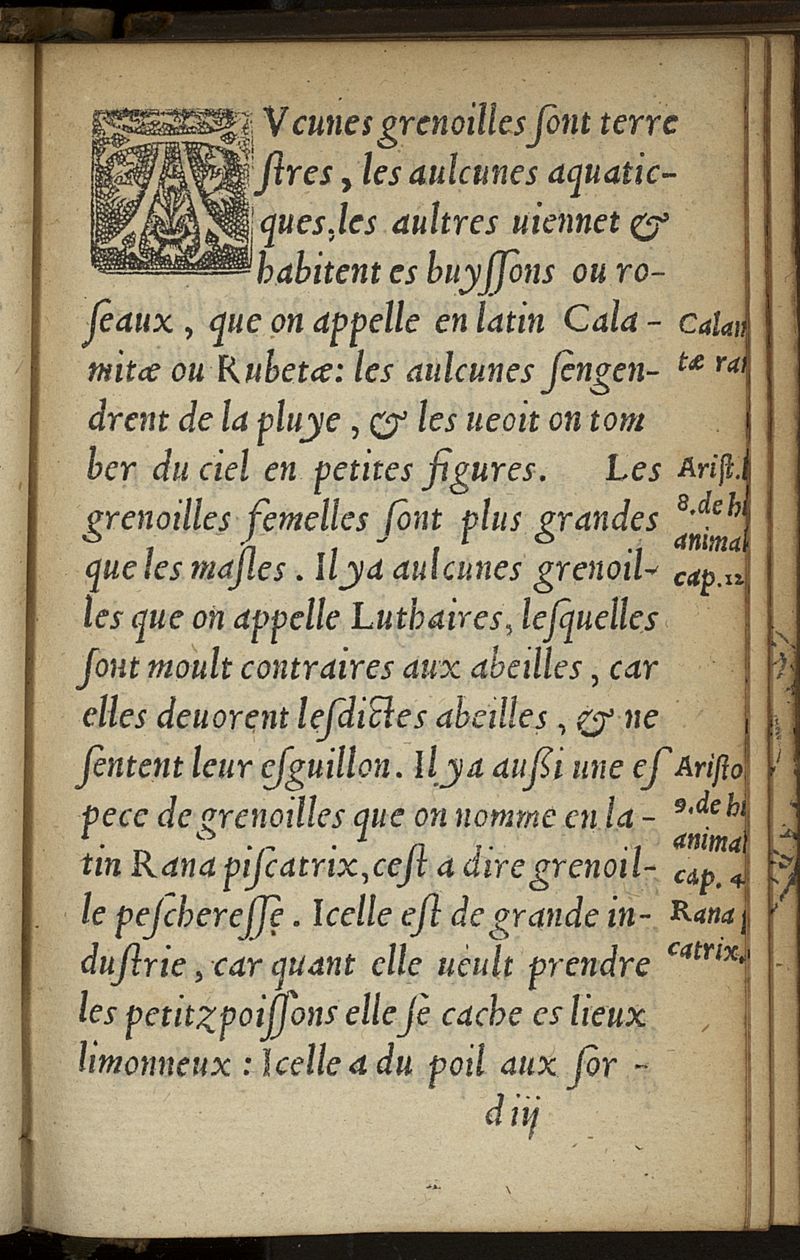 AVcunes grenoilles ſont terre
ſtres, les aulcunes aquatic-
ques, les aultres uiennet &
habitent es buyſſons ou ro-
ſeaux, que on appelle en latin Cala-
mitæ ou Rubetæ: les aulcunes ſengen-
drent de la pluye, & les ueoit on tom
ber du ciel en petites figures. Les
grenoilles femelles ſont plus grandes
que les maſles. Il ya aulcunes grenoil-
les que on appelle Luthaires, leſquelles
ſont moult contraires aux abeilles, car
elles deuorent leſdictes abeilles, & ne
ſentent leur eſguillon. Il ya auſſi une eſ
pece de grenoilles que on nomme en la-
tin Rana piſcatrix, ceſt a dire grenoil-
le peſchereſſe. Icelle eſt de grande in-
duſtrie, car quant elle ueult prendre
les petitz poiſſons elle ſe cache es lieux
limonneux: Icelle a du poil aux ſor-
d iij
tæ
Ariſt.
8. de
cap. 12
Ariſto
9. de
cap. 4
Rana
catrix.